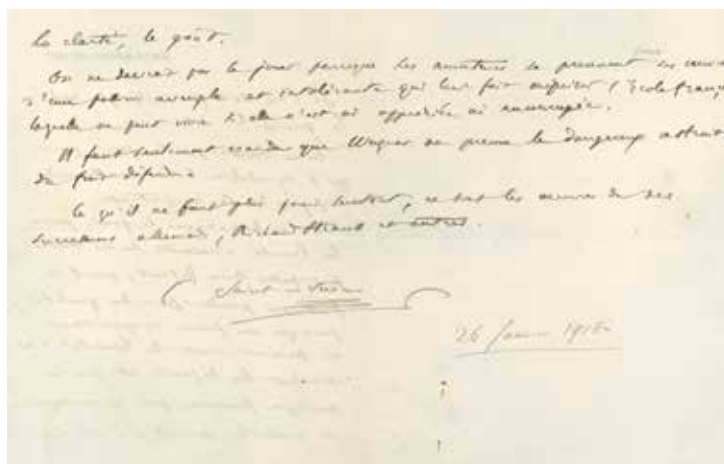 la clarté, le goût.
On ne devrait pas le jouer parceque les amateurs se prennent
d'une passion aveugle et intolérante qui leur fait mépriser l'Ecole França
laquelle ne peut vivre si elle n'est ni appréciée ni encouragée.
Il faut seulement que Wagner ne prenne le dangereux attrait
du fruit défendu.
Ce qu'il ne faut plus jouer surtout, ce sont les œuvres de ses
successeurs allemands, Richard Strauss et autres.
26